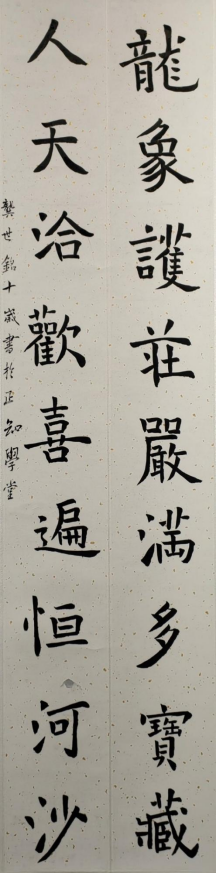 龍象護莊嚴滿多寶藏
人天洽歡喜遍恒河沙
龔世銘十歲書於正知學堂